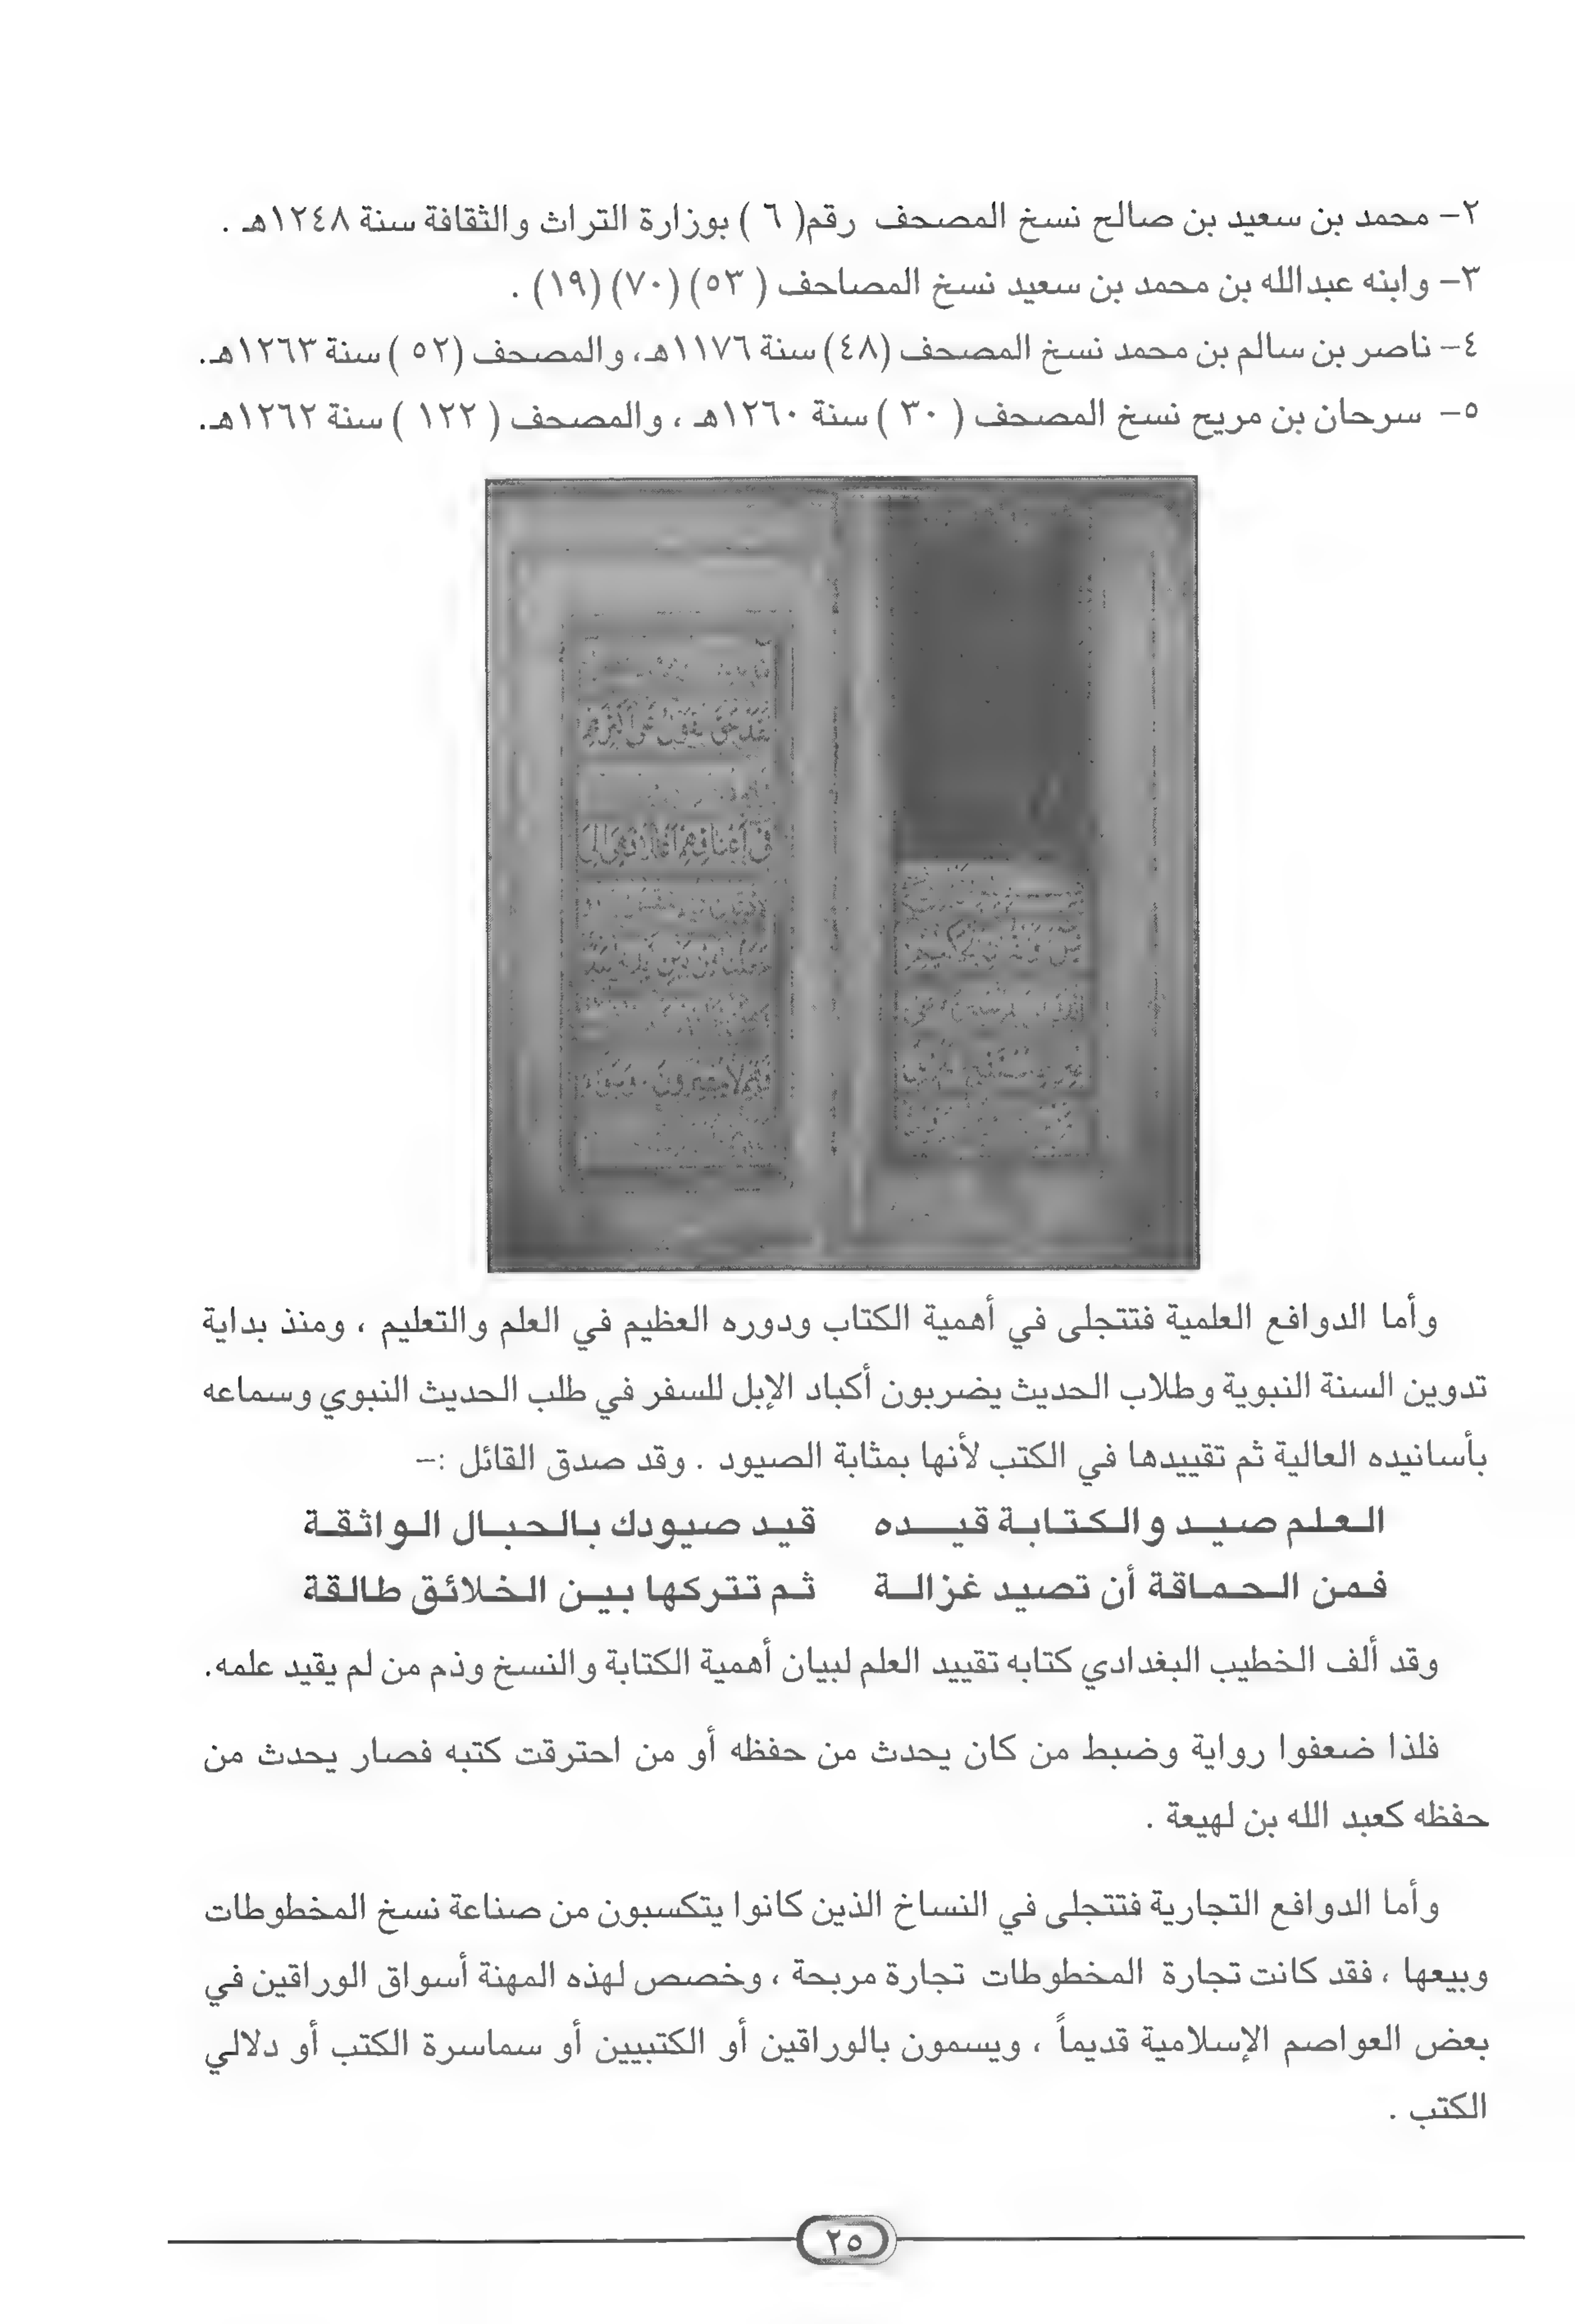 ٢– محمد بن سعيد بن صالح نسخ المصحف رقم( ٦ ) بوزارة التراث والثقافة سنة ١٢٤٨هـ .
٣– وابنه عبدالله بن محمد بن سعيد نسخ المصاحف ( ٥٣) (٧٠) (١٩) .
٤– ناصر بن سالم بن محمد نسخ المصحف (٤٨) سنة ١١٧٦هـ، والمصحف (٥٢ ) سنة ١٢٦٣هـ.
٥– سرحان بن مريح نسخ المصحف ( ٣٠ ) سنة ١٢٦٠هـ ، والمصحف ( ١٢٢ ) سنة ١٢٦٢هـ.
وأما الدوافع العلمية فتتجلى في أهمية الكتاب ودوره العظيم في العلم والتعليم ، ومنذ بداية
تدوين السنة النبوية وطلاب الحديث يضربون أكباد الإبل للسفر في طلب الحديث النبوي وسماعه
بأسانيده العالية ثم تقييدها في الكتب لأنها بمثابة الصيود . وقد صدق القائل :–
العلم صيد والكتابة قيده قيد صيودك بالحبال الواثقة
فمن الحماقة أن تصيد غزالة ثم تتركها بين الخلائق طالقة
وقد ألف الخطيب البغدادي كتابه تقييد العلم لبيان أهمية الكتابة والنسخ وذم من لم يقيد علمه.
فلذا ضعفوا رواية وضبط من كان يحدث من حفظه أو من احترقت كتبه فصار يحدث من
حفظه كعبد الله بن لهيعة .
وأما الدوافع التجارية فتتجلى في النساخ الذين كانوا يتكسبون من صناعة نسخ المخطوطات
وبيعها ، فقد كانت تجارة المخطوطات تجارة مربحة ، وخصص لهذه المهنة أسواق الوراقين في
بعض العواصم الإسلامية قديماً ، ويسمون بالوراقين أو الكتبيين أو سماسرة الكتب أو دلالي
الكتب .
٢٥